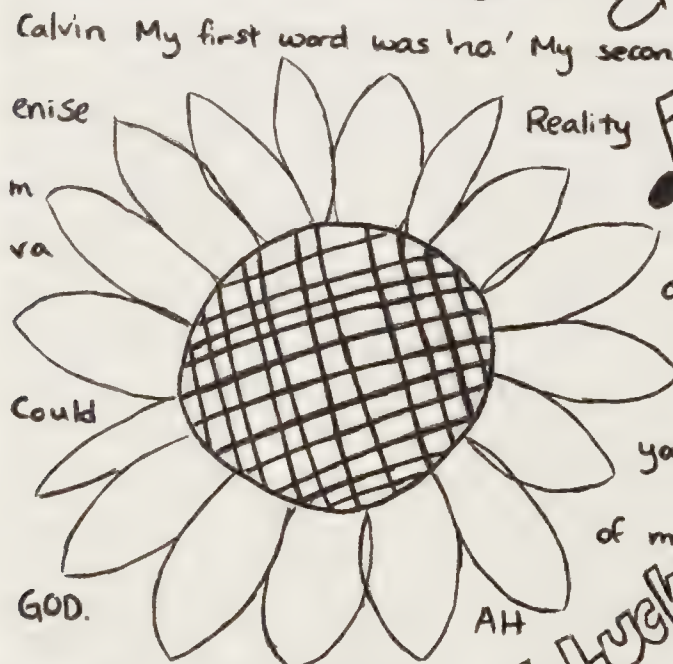 Calvin My first word was 'no.' My secon
enise
Reality
m
va
Could
ya
of m
GOD.
AH
Luck